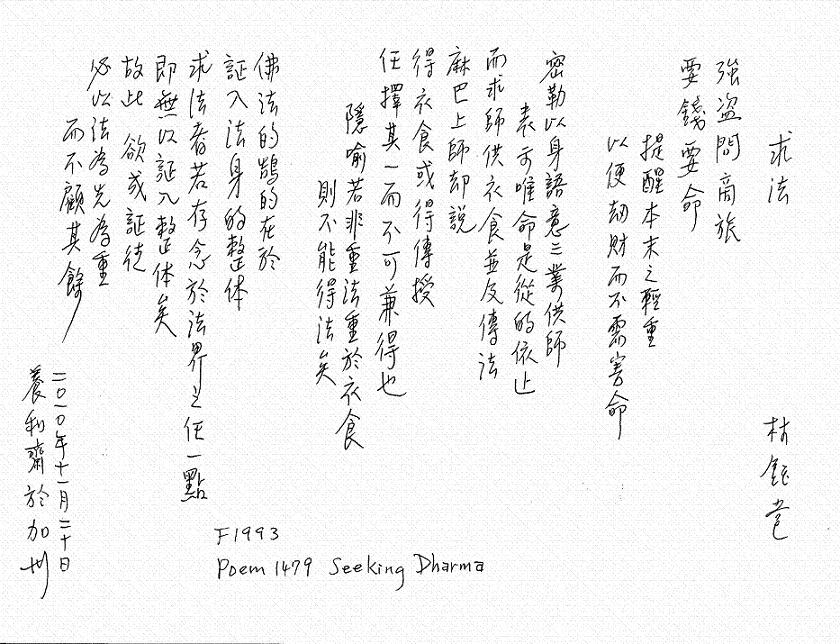 求法
林鈺堂
強盜問商旅
要錢要命
提醒本末之輕重
以便劫財而不需害命
密勒以身語意三業供師
表示唯命是從的依止
而求師供衣食並及傳法
麻巴上師却説
得衣食或得傳授
任擇其一而不可兼得也
隱喻若非重法重於衣食
則不能得法矣
佛法的鵠的在於
証入法身的整体
求法者若存念於法界之任一點
即無以証入整体矣
故此 欲求証徒
必以法為先為重
而不顧其餘
二〇一〇年十一月二十日
養和齋於加州
F1993
Poem 1479 Seeking Dharma